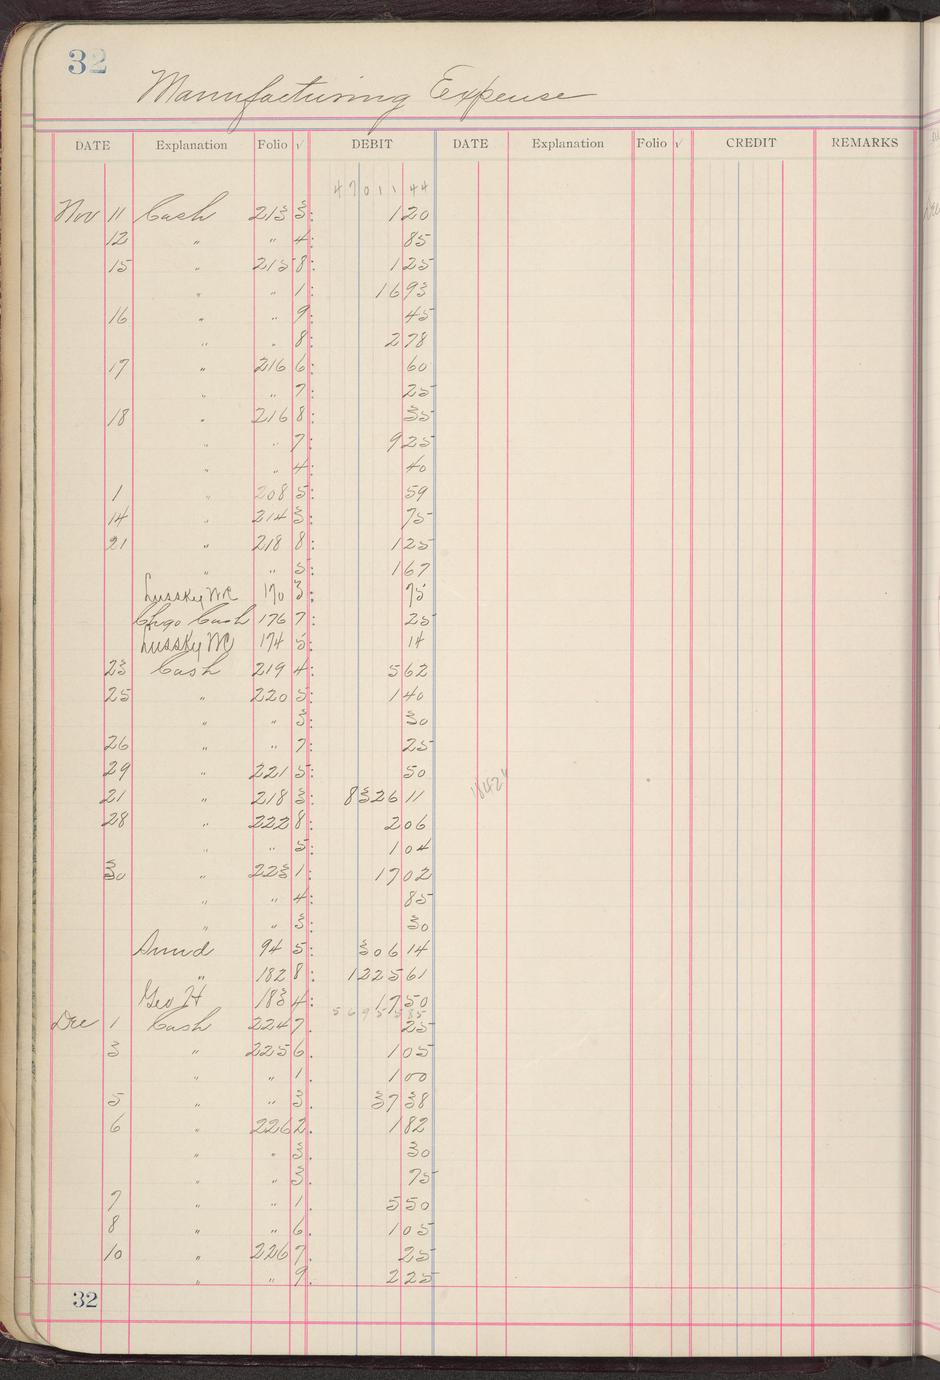 32
Manufacturing Expense
DATE Explanation Folio √ DEBIT DATE Explanation Folio √ CREDIT REMARKS
47011 44
Nov 11 Cash 213 3: 1 20
12 " " 4: 85
15 " 215 8: 1 25
" " 1: 16 93
16 " " 9: 45
" " 8: 2 78
17 " 216 6: 60
" " 7: 25
18 " 216 8: 35
" " 7: 9 25
" " 4: 40
1 " 208 5: 59
14 " 214 3: 75
21 " 218 8: 1 25
" " 5: 1 67
Lussky WR 170 3: 75
Chgo Cash 176 7: 25
Lussky WR 174 5: 14
23 Cash 219 4: 5 62
25 " 220 5: 1 40
" " 3: 30
26 " " 7: 25
29 " 221 5: 50
21 " 218 3: 8326 11
28 " 222 8: 2 06
" " 5: 1 04
30 " 223 1: 17 02
" " 4: 85
" " 3: 30
94 5: 306 14
" 182 8: 1225 61
Geo H 183 4: 17 50
Dec 1 Cash 224 7. 25
3 " 225 6. 1 05
" " 1. 1 00
5 " " 3. 37 38
6 " 226 2. 1 82
" " 3. 30
" " 3. 75
7 " " 1. 5 50
8 " " 6. 1 05
10 " 226 7. 25
" " 9. 2 25
32